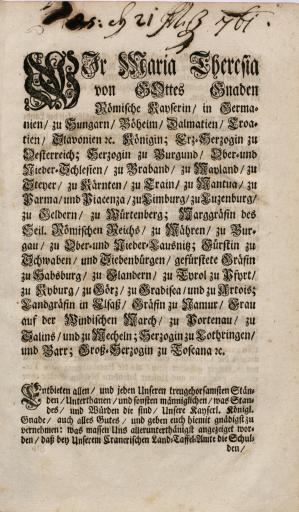 21 1761.
WIr Maria Theresia
von GOttes Gnaden
Römische Kayserin, in Germa-
nien/ zu Hungarn/ Böheim/ Dalmatien/ Croa-
tien/ Slavonien ꝛc. Königin; Ertz-Herzogin zu
Oesterreich; Herzogin zu Burgund/ Ober-und
Nieder-Schlesien/ zu Braband/ zu Mayland/ zu
Steyer/ zu Kärnten/ zu Crain/ zu Mantua/ zu
Parma/und Piacenza/ zu Limburg/ zu Luzenburg/
zu Geldern/ zu Würtenberg; Marggräfin des
Heil. Römischen Reichs/ zu Mähren/ zu Bur-
gau/ zu Ober-und Nieder-Laußnitz; Fürstin zu
Schwaben/ und Siebenbürgen/ gefürstete Gräfin
zu Habsburg/ zu Flandern/ zu Tyrol zu Pfyrt/
zu Kyburg/ zu Görz/ zu Gradisca/ und zu Artois;
Landgräfin in Elsaß/ Gräfin zu Namur/ Frau
auf der Windischen March/ zu Portenau/ zu
Salins/ und zu Mecheln; Herzogin zu Lothringen/
und Barr; Groß-Herzogin zu Toscana ꝛc.
Entbieten allen/ und jeden Unseren treugehorsamsten Stän-
den/ Unterthanen/ und sonsten männiglichen/ was Stan-
des/ und Würden die sind/ Unsere Kayserl. Königl.
Gnade/ auch alles Gutes/ und geben euch hiemit gnädigst zu
vernehmen: was massen Uns allerunterthänigst angezeiget wor-
den/ daß bey Unserem Cranerischen Land-Taffel-Amte die Schul-
den/